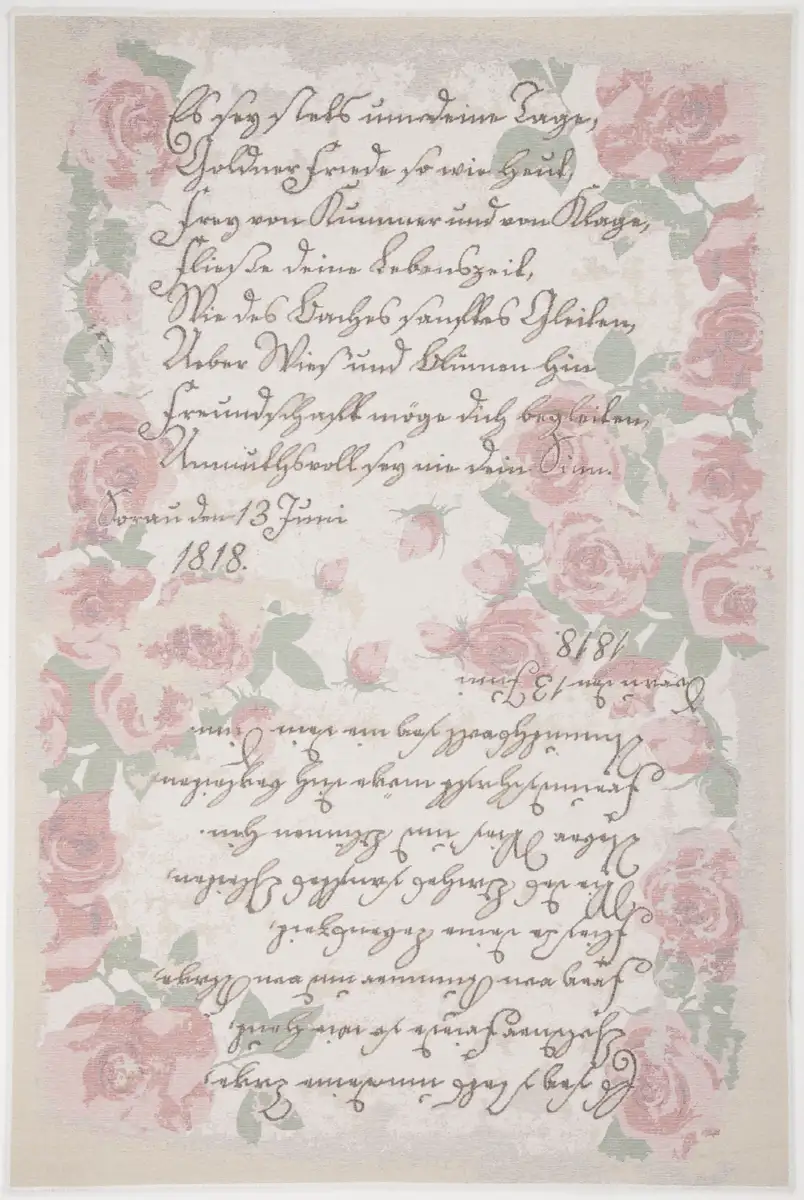 Es sey stets um deine Tage,
Goldner Friede so wie heut,
Frey von Kummer und von Klage,
Fließe deine Lebenszeit,
Wie des Baches sanftes Gleiten,
Ueber Wies und Blumen hin
Freundschaft möge dich begleiten,
Unmuthsvoll sey nie dein Sinn.
Sorau den 13 Juni
1818.
Es sey stets um deine Tage,
Goldner Friede so wie heut,
Frey von Kummer und von Klage,
Fließe deine Lebenszeit,
Wie des Baches sanftes Gleiten,
Ueber Wies und Blumen hin.
Freundschaft möge dich begleiten
Unmuthsvoll sey nie dein Sinn.
Sorau den 13 Juni
1818.